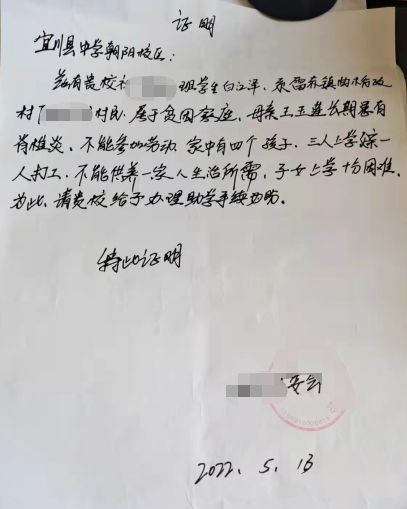 证明
宜川县中学朝阳校区：
兹有贵校初 班学生白江泽，系 镇 村
村（ ）村民，属于贫困家庭，母亲王玉莲长期患有
脊椎炎，不能参加劳动，家中有四个孩子，三人上学缘一
人打工，不能供养一家人生活所需，子女上学十分困难，
为此，请贵校给予办理助学手续为盼。
特此证明
委会
2022. 5. 13